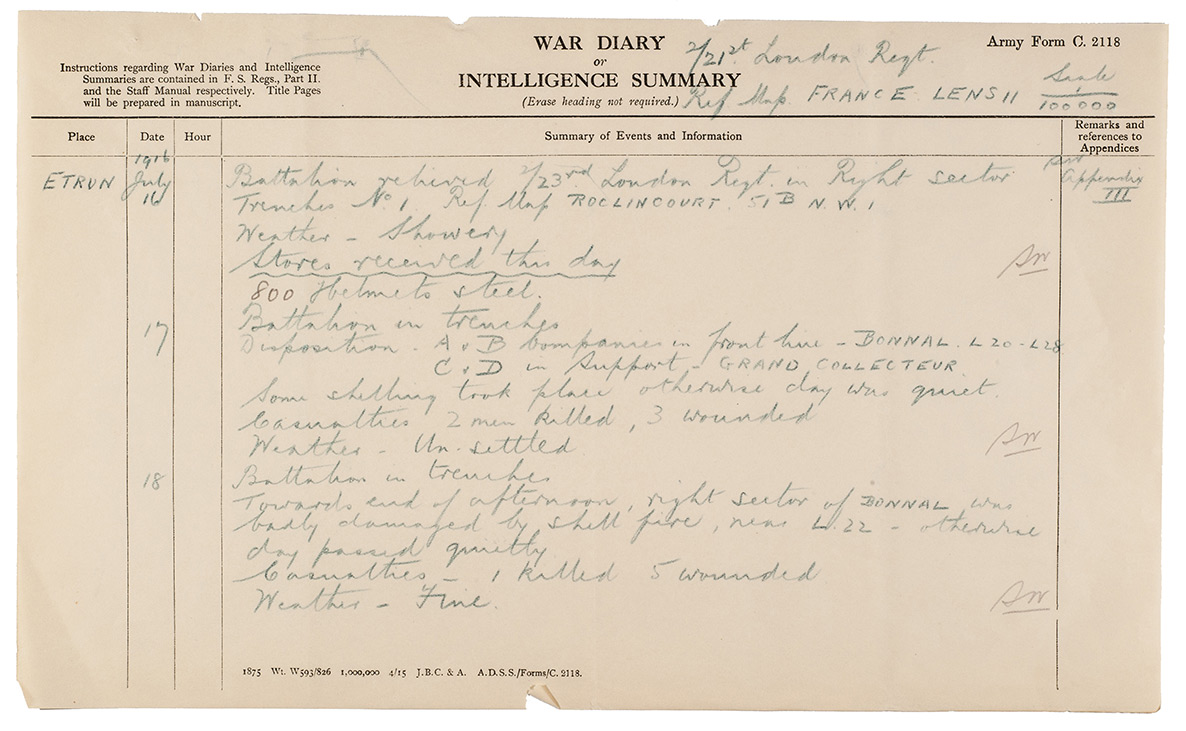 WAR DIARY
or
INTELLIGENCE SUMMARY
(Erase heading not required.)
2/21st London Regt.
Ref. Map. FRANCE LENS 11
Scale
1
100000
Army Form C. 2118
Instructions regarding War Diaries and Intelligence
Summaries are contained in F. S. Regs., Part II.
and the Staff Manual respectively. Title Pages
will be prepared in manuscript.
Place Date Hour Summary of Events and Information Remarks and
references to
Appendices
1916
ETRUN July Battalion relieved 2/23rd London Regt. in Right sector Appendix
16 Trenches No 1. Ref Map ROCLINCOURT. 51B N.W.1 III
Weather - Showery
Stores received this day
800 Helmets steel.
17 Battalion in trenches
Disposition - A & B Companies in front line - BONNAL. L20 - L28
C & D in Support - GRAND COLLECTEUR
Some shelling took place otherwise day was quiet.
Casualties 2 men killed, 3 wounded
Weather - Un-settled
18 Battalion in trenches
Towards end of afternoon, right sector of BONNAL was
badly damaged by shell fire, near L.22 - otherwise
day passed quietly
Casualties - 1 killed 5 wounded
Weather - Fine.
1875 Wt. W593/826 1,000,000 4/15 J.B.C. & A. A.D.S.S./Forms/C. 2118.